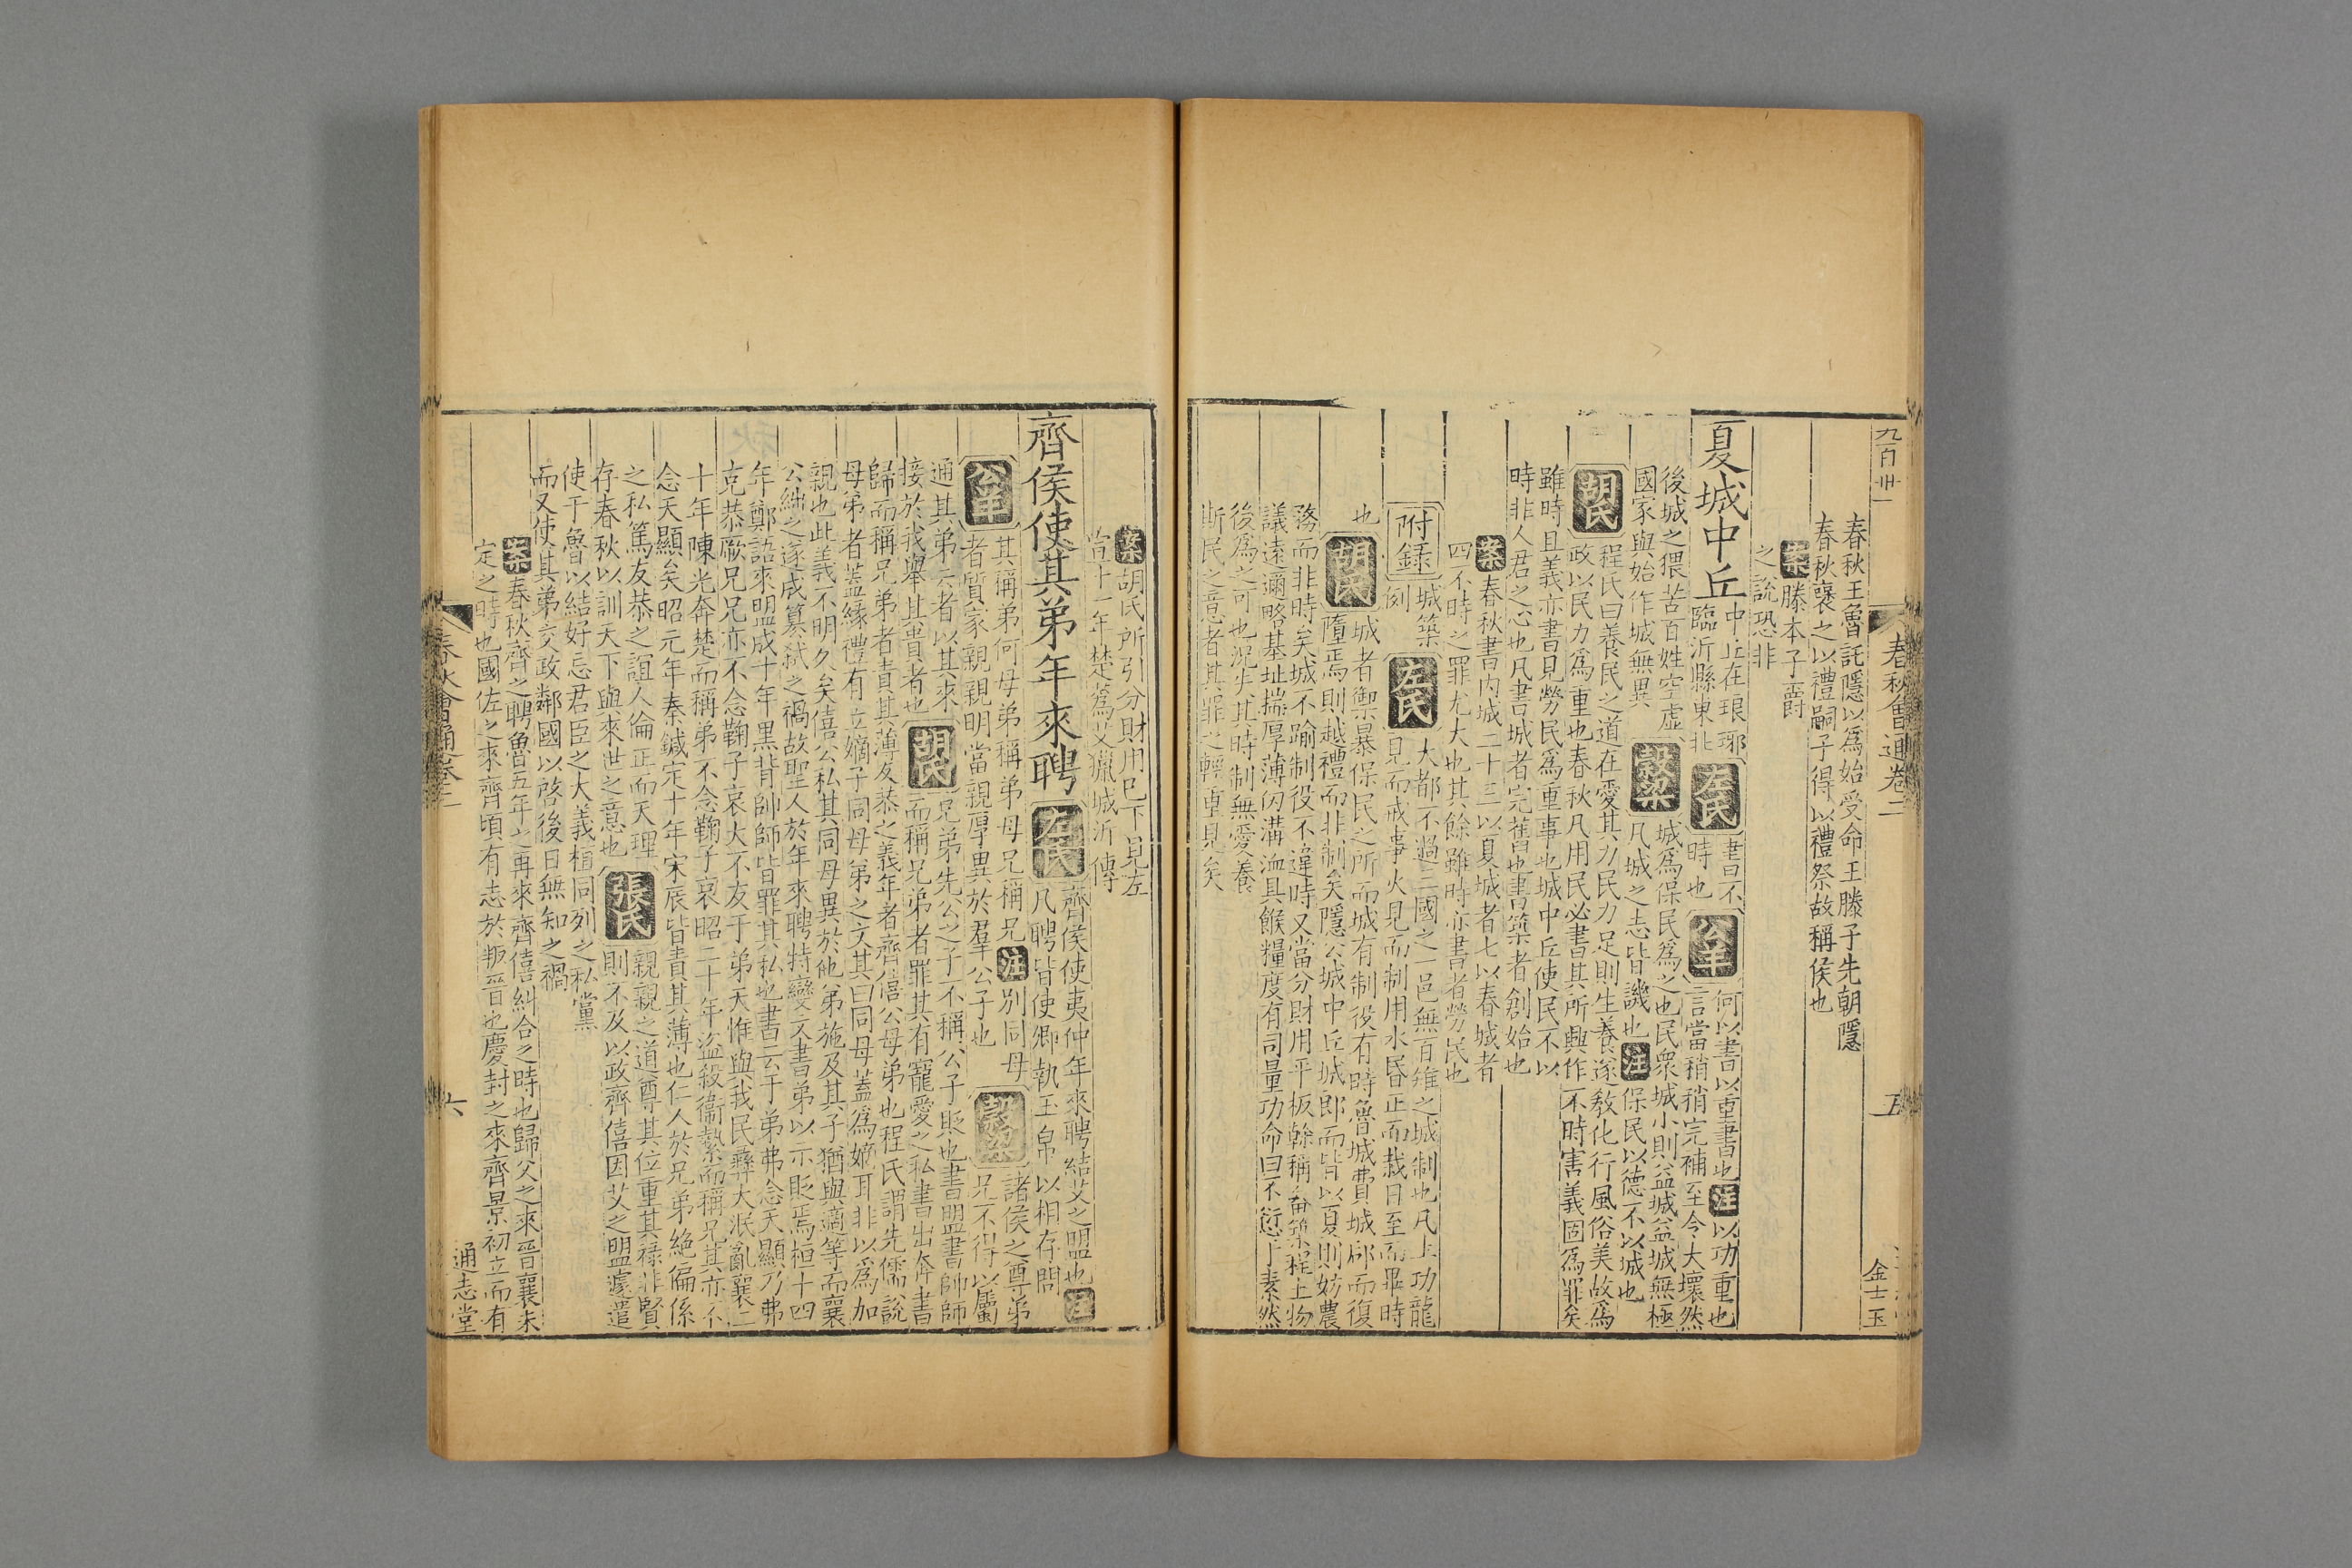 九百卅一
春秋會通卷二
五
金士玉
春秋王魯託隱以爲始受命王滕子先朝隱
春秋襃之以禮嗣子得以禮祭故稱侯也
案滕本子爵
之說恐非
夏城中丘
中丘在琅琊
臨沂縣東北
左氏
書不
時也
公羊
何以書以重書也注以功重也
言當稍稍完補至今大壞然
後城之猥苦百姓空虛
國家與始作城無異
穀梁
城爲保民爲之也民衆城小則益城益城無極
凡城之志皆譏也注保民以德不以城也
胡氏
程氏曰養民之道在愛其力民力足則生養遂敎化行風俗美故爲
政以民力爲重也春秋凡用民必書其所興作不時害義固爲罪矣
雖時且義亦書見勞民爲重事也城中丘使民不以
時非人君之心也凡書城者完舊也書築者創始也
案春秋書內城二十三以夏城者七以春城者
四不時之罪尤大也其餘雖時亦書者勞民也
附錄
城築
例
左氏
大都不過三國之一邑無百雉之城制也凡土功龍
見而戒事火見而制用水昏正而栽日至而畢時
也
胡氏
城者禦暴保民之所而城有制役有時魯城費城郈而復
墮焉則越禮而非制矣隱公城中丘城郎而皆以夏則妨農
務而非時矣城不踰制役不違時又當分財用平板榦稱畚築程土物
議遠邇略基址揣厚薄仞溝洫具餱糧度有司量功命日不愆于素然
後爲之可也況失其時制無愛養
斯民之意者其罪之輕重見矣
案胡氏所引分財用已下見左
宣十一年楚蔿艾獵城沂傳
齊侯使其弟年來聘
左氏
齊侯使夷仲年來聘結艾之盟也注
凡聘皆使卿執玉帛以相存問
公羊
其稱弟何母弟稱弟母兄稱兄注別同母
者質家親親明當親厚異於羣公子也
穀梁
諸侯之尊弟
兄不得以屬
通其弟云者以其來
接於我舉其貴者也
胡氏
兄弟先公之子不稱公子貶也書盟書帥師
而稱兄弟者罪其有寵愛之私書出奔書
歸而稱兄弟者責其薄友恭之義年者齊僖公母弟也程氏謂先儒說
母弟者蓋緣禮有立嫡子同母弟之文其曰同母蓋爲嫡耳非以爲加
親也此義不明久矣僖公私其同母異於他弟施及其子猶與適等而襄
公絀之遂成簒弒之禍故聖人於年來聘特變文書弟以示貶焉桓十四
年鄭語來盟成十年黑背帥師皆罪其私也書云于弟弗念天顯乃弗
克恭厥兄兄亦不念鞠子哀大不友于弟天惟與我民彝大泯亂襄二
十年陳光奔楚而稱弟不念鞠子哀昭二十年盜殺衞縶而稱兄其亦不
念天顯矣昭元年秦鍼定十年宋辰皆責其薄也仁人於兄弟絶偏係
之私篤友恭之誼人倫正而天理
存春秋以訓天下與來世之意也
張氏
親親之道尊其位重其祿非賢
則不及以政齊僖因艾之盟遽遣
使于魯以結好忘君臣之大義植同列之私黨
而又使其弟交政鄰國以啓後日無知之禍
案春秋齊之聘魯五年之再來齊僖糾合之時也歸父之來晉襄未
定之時也國佐之來齊頃有志於叛晉也慶封之來齊景初立而有
春秋會通卷二
六
通志堂